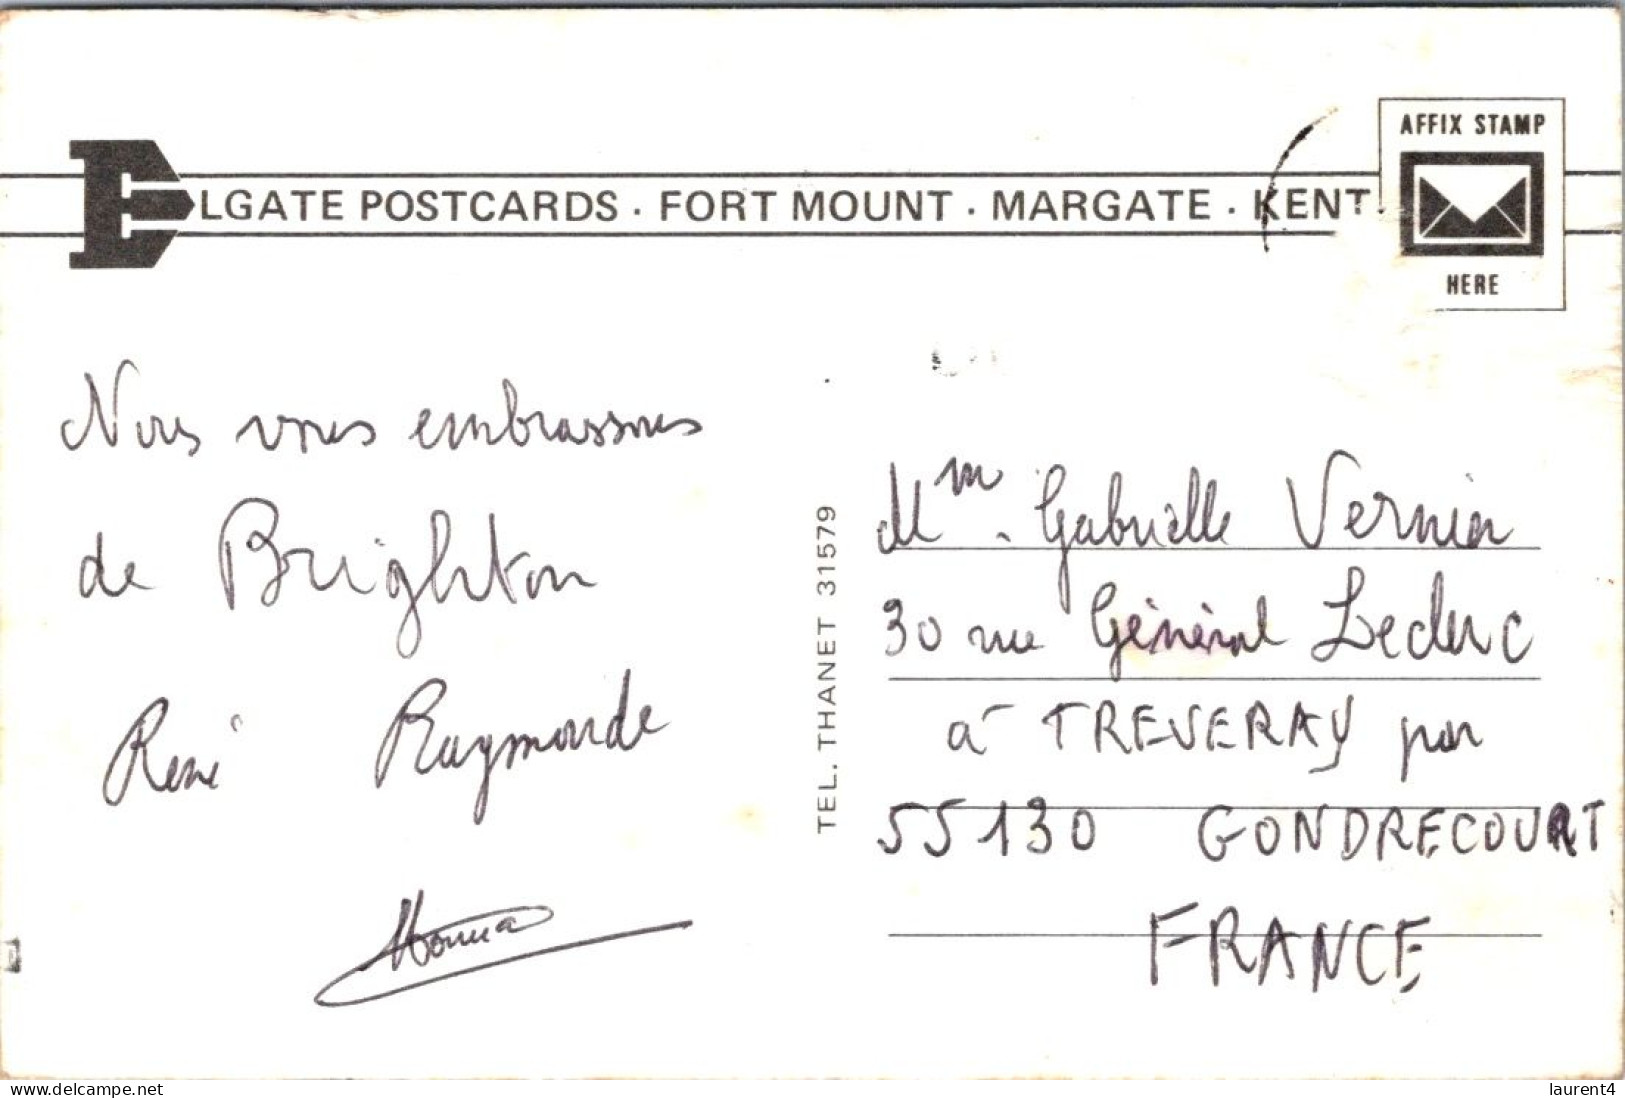 ELGATE POSTCARDS · FORT MOUNT · MARGATE · KENT.
AFFIX STAMP
HERE
Nous vous embrassons
de Brighton
René Raymonde
TEL. THANET 31579
Mm. Gabrielle Vernier
30 rue Général Leclerc
à TREVERAY par
55130 GONDRECOURT
FRANCE
www.delcampe.net
laurent4